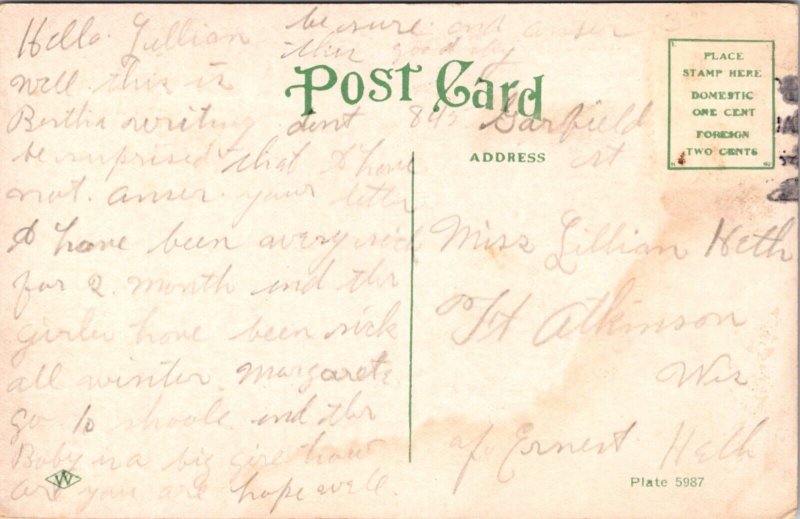 Hello. Lillian be sure and anser
this good by
well this is
Bertha writing dont
be surprised that I have
not. anser your letter
I have been avery sick
for 2. month and the
girles have been sick
all winter Margarete
go to shoole and the
Baby is a big girl how
are you are hope well
POST CARD
842 Garfield
st
ADDRESS
Miss Lillian Heth
Ft Atkinson
Wis
of. Ernest Heth
PLACE
STAMP HERE
DOMESTIC
ONE CENT
FOREIGN
TWO CENTS
W
Plate 5987